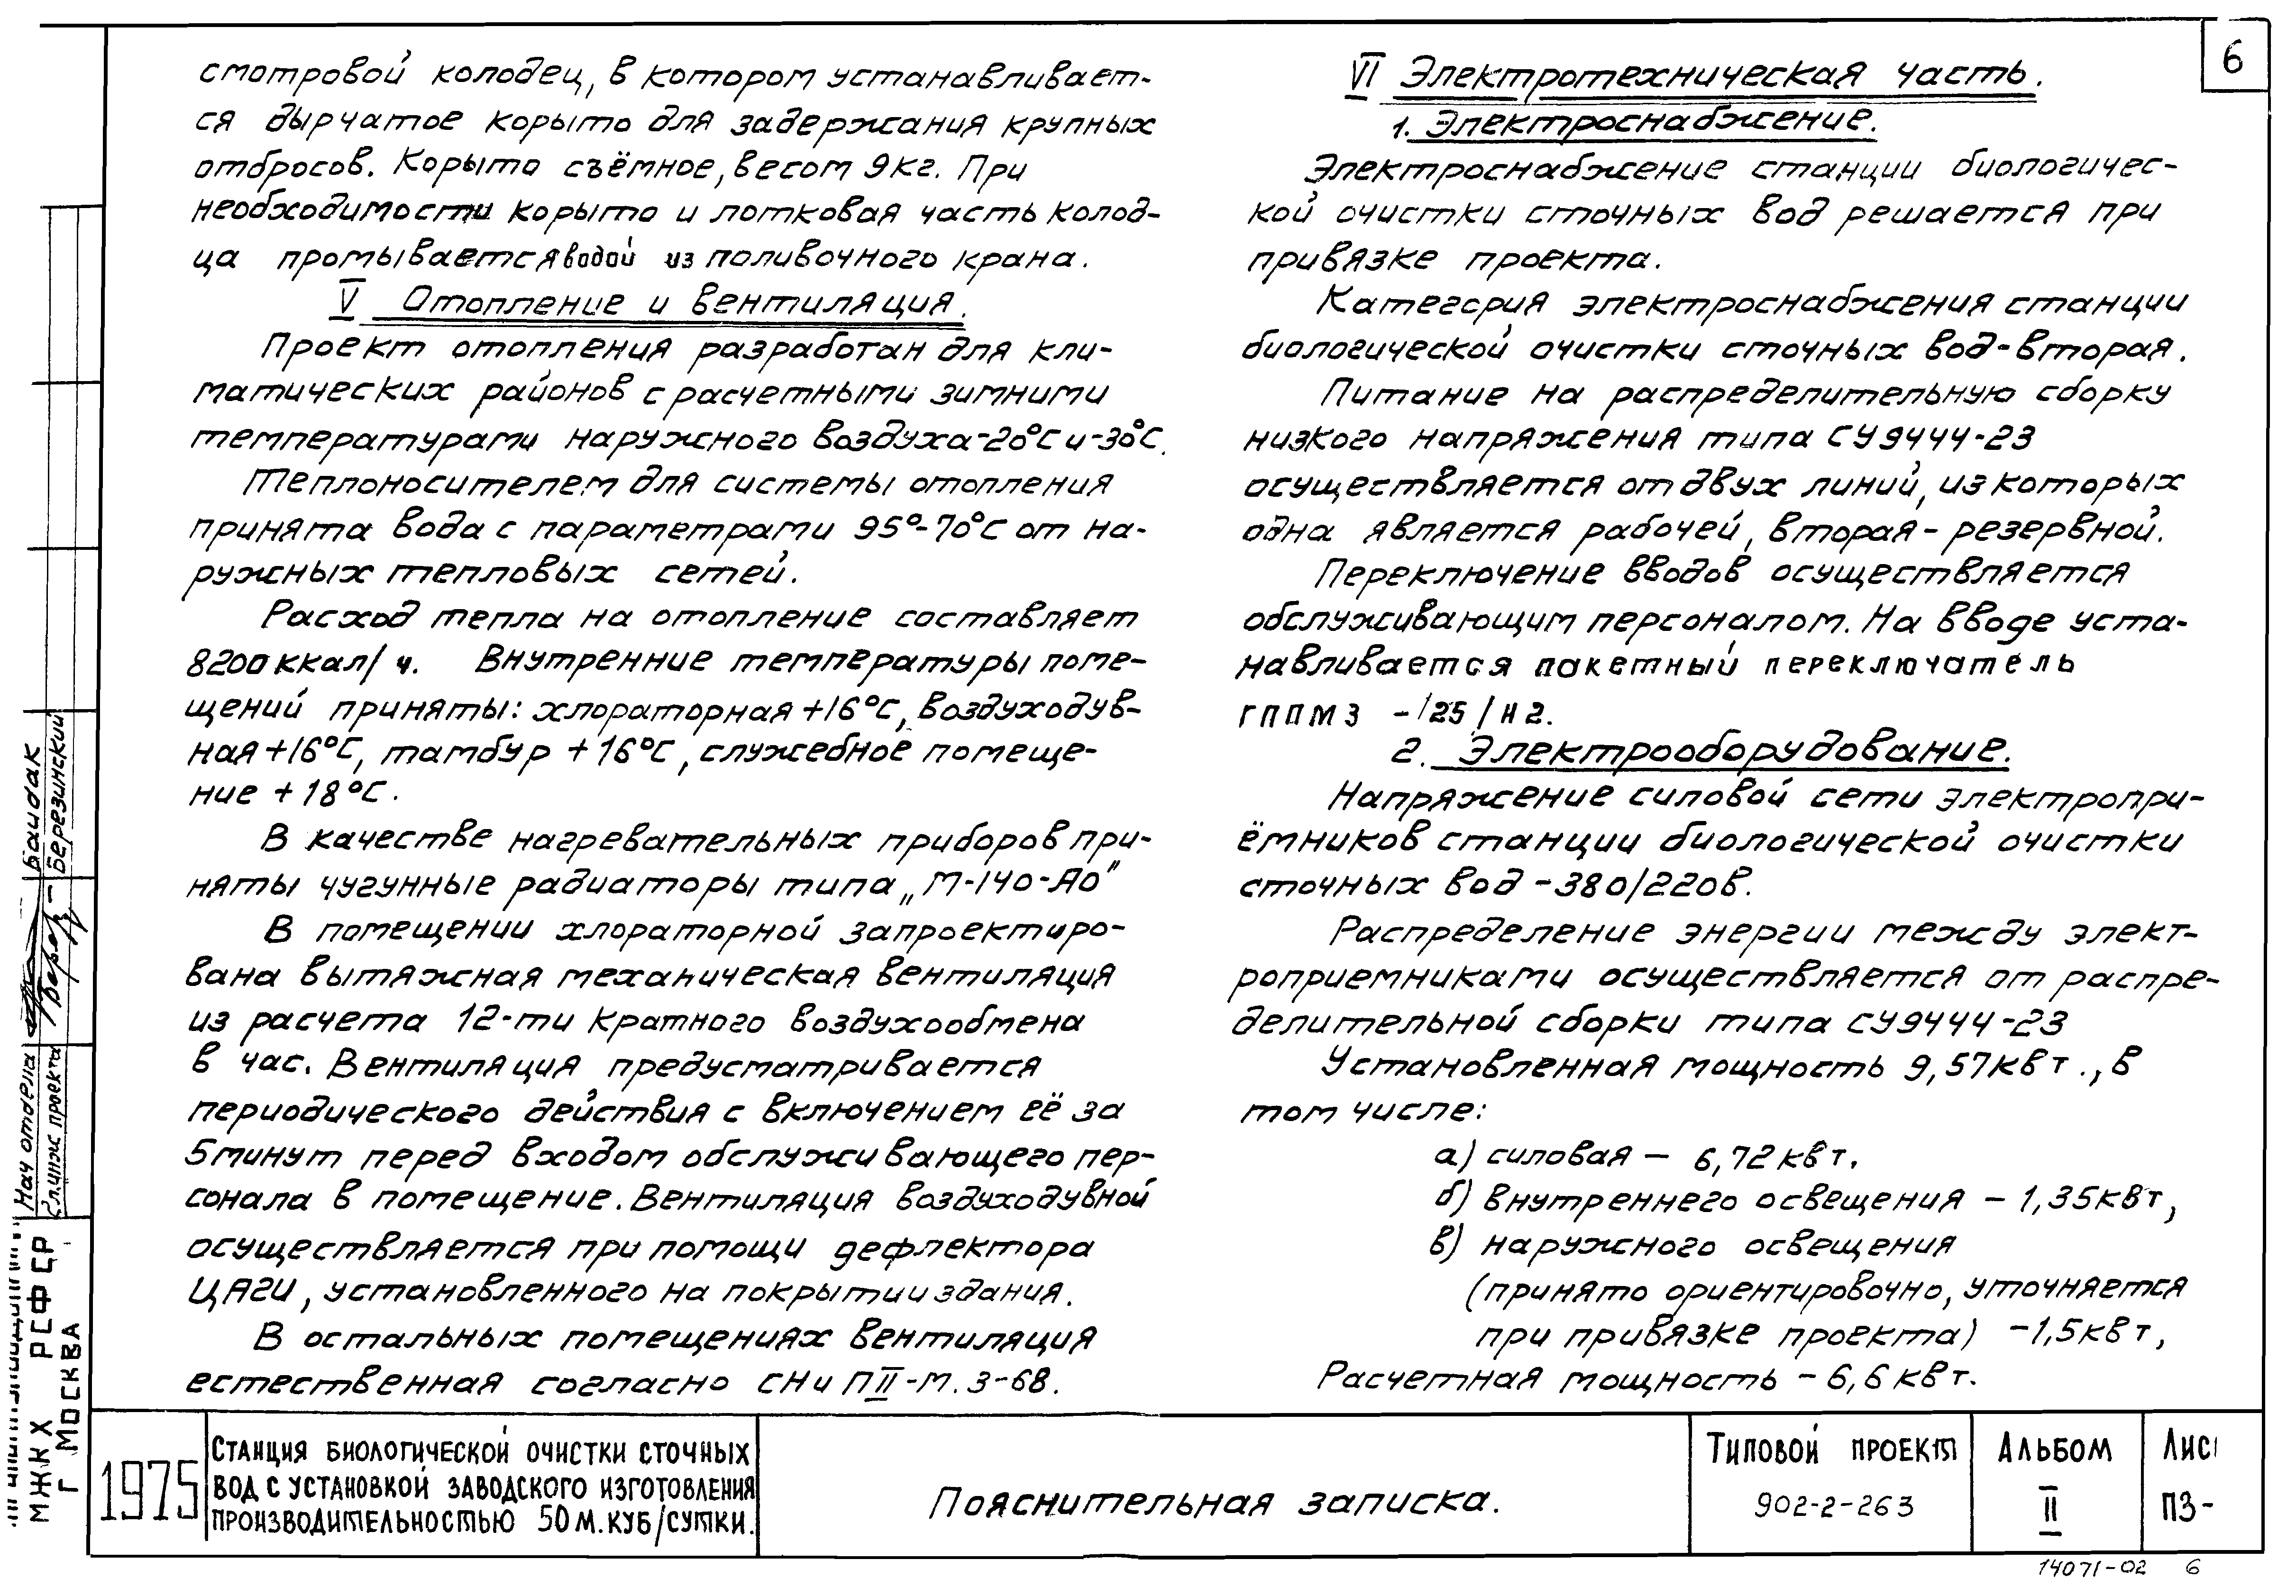 6
смотровой колодец, в котором устанавливает-
ся дырчатое корыто для задержания крупных
отбросов. Корыто съёмное, весом 9кг. При
необходимости корыто и лотковая часть колод-
ца промывается водой из поливочного крана.
V Отопление и вентиляция.
Проект отопления разработан для кли-
матических районов с расчетными зимними
температурами наружного воздуха -20°С и -30°С.
Теплоносителем для системы отопления
принята вода с параметрами 95°-70°С от на-
ружных тепловых сетей.
Расход тепла на отопление составляет
8200 ккал/ч. Внутренние температуры поме-
щений приняты: хлораторная +16°С, воздуходув-
ная +16°С, тамбур +16°С, служебное помеще-
ние +18°С.
В качестве нагревательных приборов при-
няты чугунные радиаторы типа „М-140-АО"
В помещении хлораторной запроектиро-
вана вытяжная механическая вентиляция
из расчета 12-ти кратного воздухообмена
в час. Вентиляция предусматривается
периодического действия с включением её за
5 минут перед входом обслуживающего пер-
сонала в помещение. Вентиляция воздуходувной
осуществляется при помощи дефлектора
ЦАГИ, установленного на покрытии здания.
В остальных помещениях вентиляция
естественная согласно СНиП II-М.3-68.
VI Электротехническая часть.
1. Электроснабжение.
Электроснабжение станции биологичес-
кой очистки сточных вод решается при
привязке проекта.
Категория электроснабжения станции
биологической очистки сточных вод-вторая.
Питание на распределительную сборку
низкого напряжения типа СУ9444-23
осуществляется от двух линий, из которых
одна является рабочей, вторая - резервной.
Переключение вводов осуществляется
обслуживающим персоналом. На вводе уста-
навливается пакетный переключатель
ГППМ3 -125/Н2.
2. Электрооборудование.
Напряжение силовой сети электропри-
ёмников станции биологической очистки
сточных вод -380/220в.
Распределение энергии между элект-
роприемниками осуществляется от распре-
делительной сборки типа СУ9444-23
Установленная мощность 9,57 квт., в
том числе:
а) силовая — 6,72 квт.
б) внутреннего освещения — 1,35 квт,
в) наружного освещения
(принято ориентировочно, уточняется
при привязке проекта) -1,5 квт,
Расчетная мощность - 6,6 квт.
Нач отдела
Гл.инж проекта Березинский
МЖКХ РСФСР
Г МОСКВА
1975
СТАНЦИЯ БИОЛОГИЧЕСКОЙ ОЧИСТКИ СТОЧНЫХ
ВОД С УСТАНОВКОЙ ЗАВОДСКОГО ИЗГОТОВЛЕНИЯ
ПРОИЗВОДИТЕЛЬНОСТЬЮ 50 М.КУБ/СУТКИ.
Пояснительная записка.
ТИПОВОЙ ПРОЕКТ
902-2-263
АЛЬБОМ
II
ЛИС
ПЗ-
14071-02 6